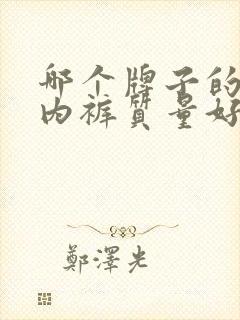 哪个牌子的
内裤质量好
鄭澤光